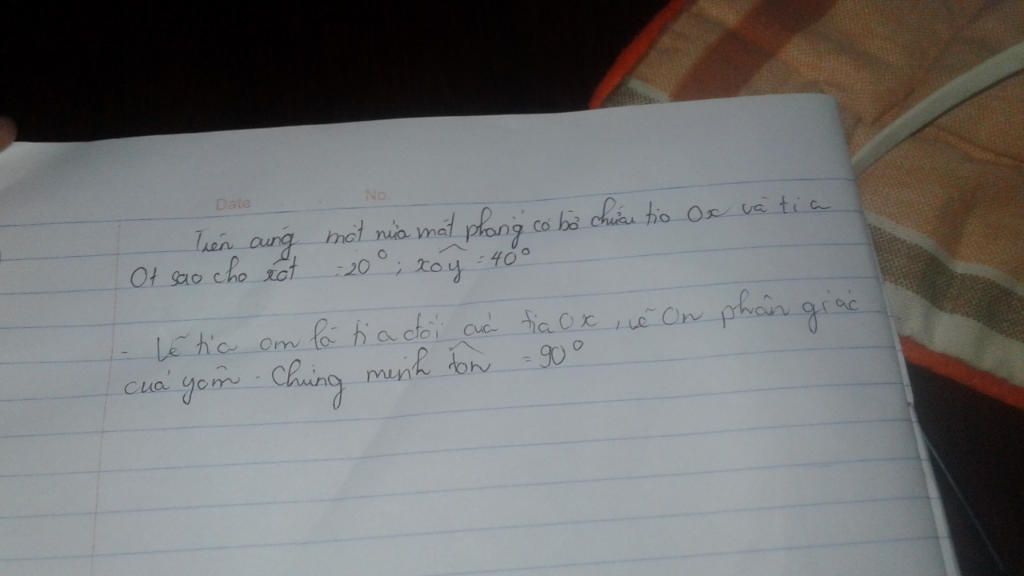 Date No.
Trên cùng một nửa mặt phẳng có bờ chứa tia Ox vẽ tia
Ot sao cho xôt = 20°; xôy = 40°
- Vẽ tia om là tia đối của tia Ox, vẽ On phân giác
của yôm. Chứng minh tôn = 90°